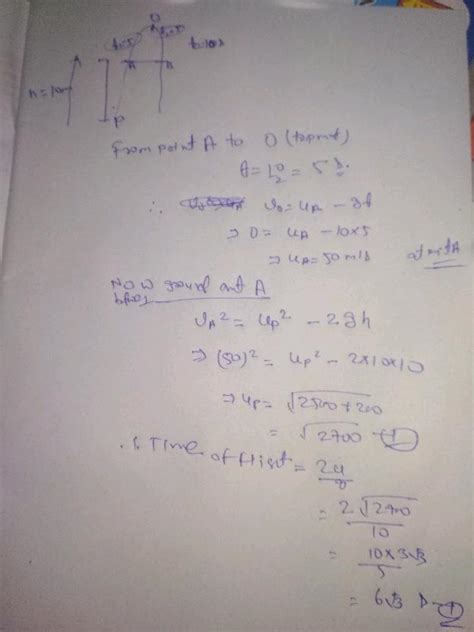 O
t=5
t=5
t=10s
A
A
B
h=10m
P
From point A to O (topmost)
t = 10/2 = 5 s.
∴ v₀ = u_A − gt
⇒ 0 = u_A − 10×5
⇒ u_A = 50 m/s
Now ground and A
v_A² = u_P² − 2gh
⇒ (50)² = u_P² − 2×10×10
⇒ u_P = √2500+200
= √2700 — ①
∴ Time of flight = 2u/g
= 2√2700/10
= 10×3√3/5
= 6√3 s — ②